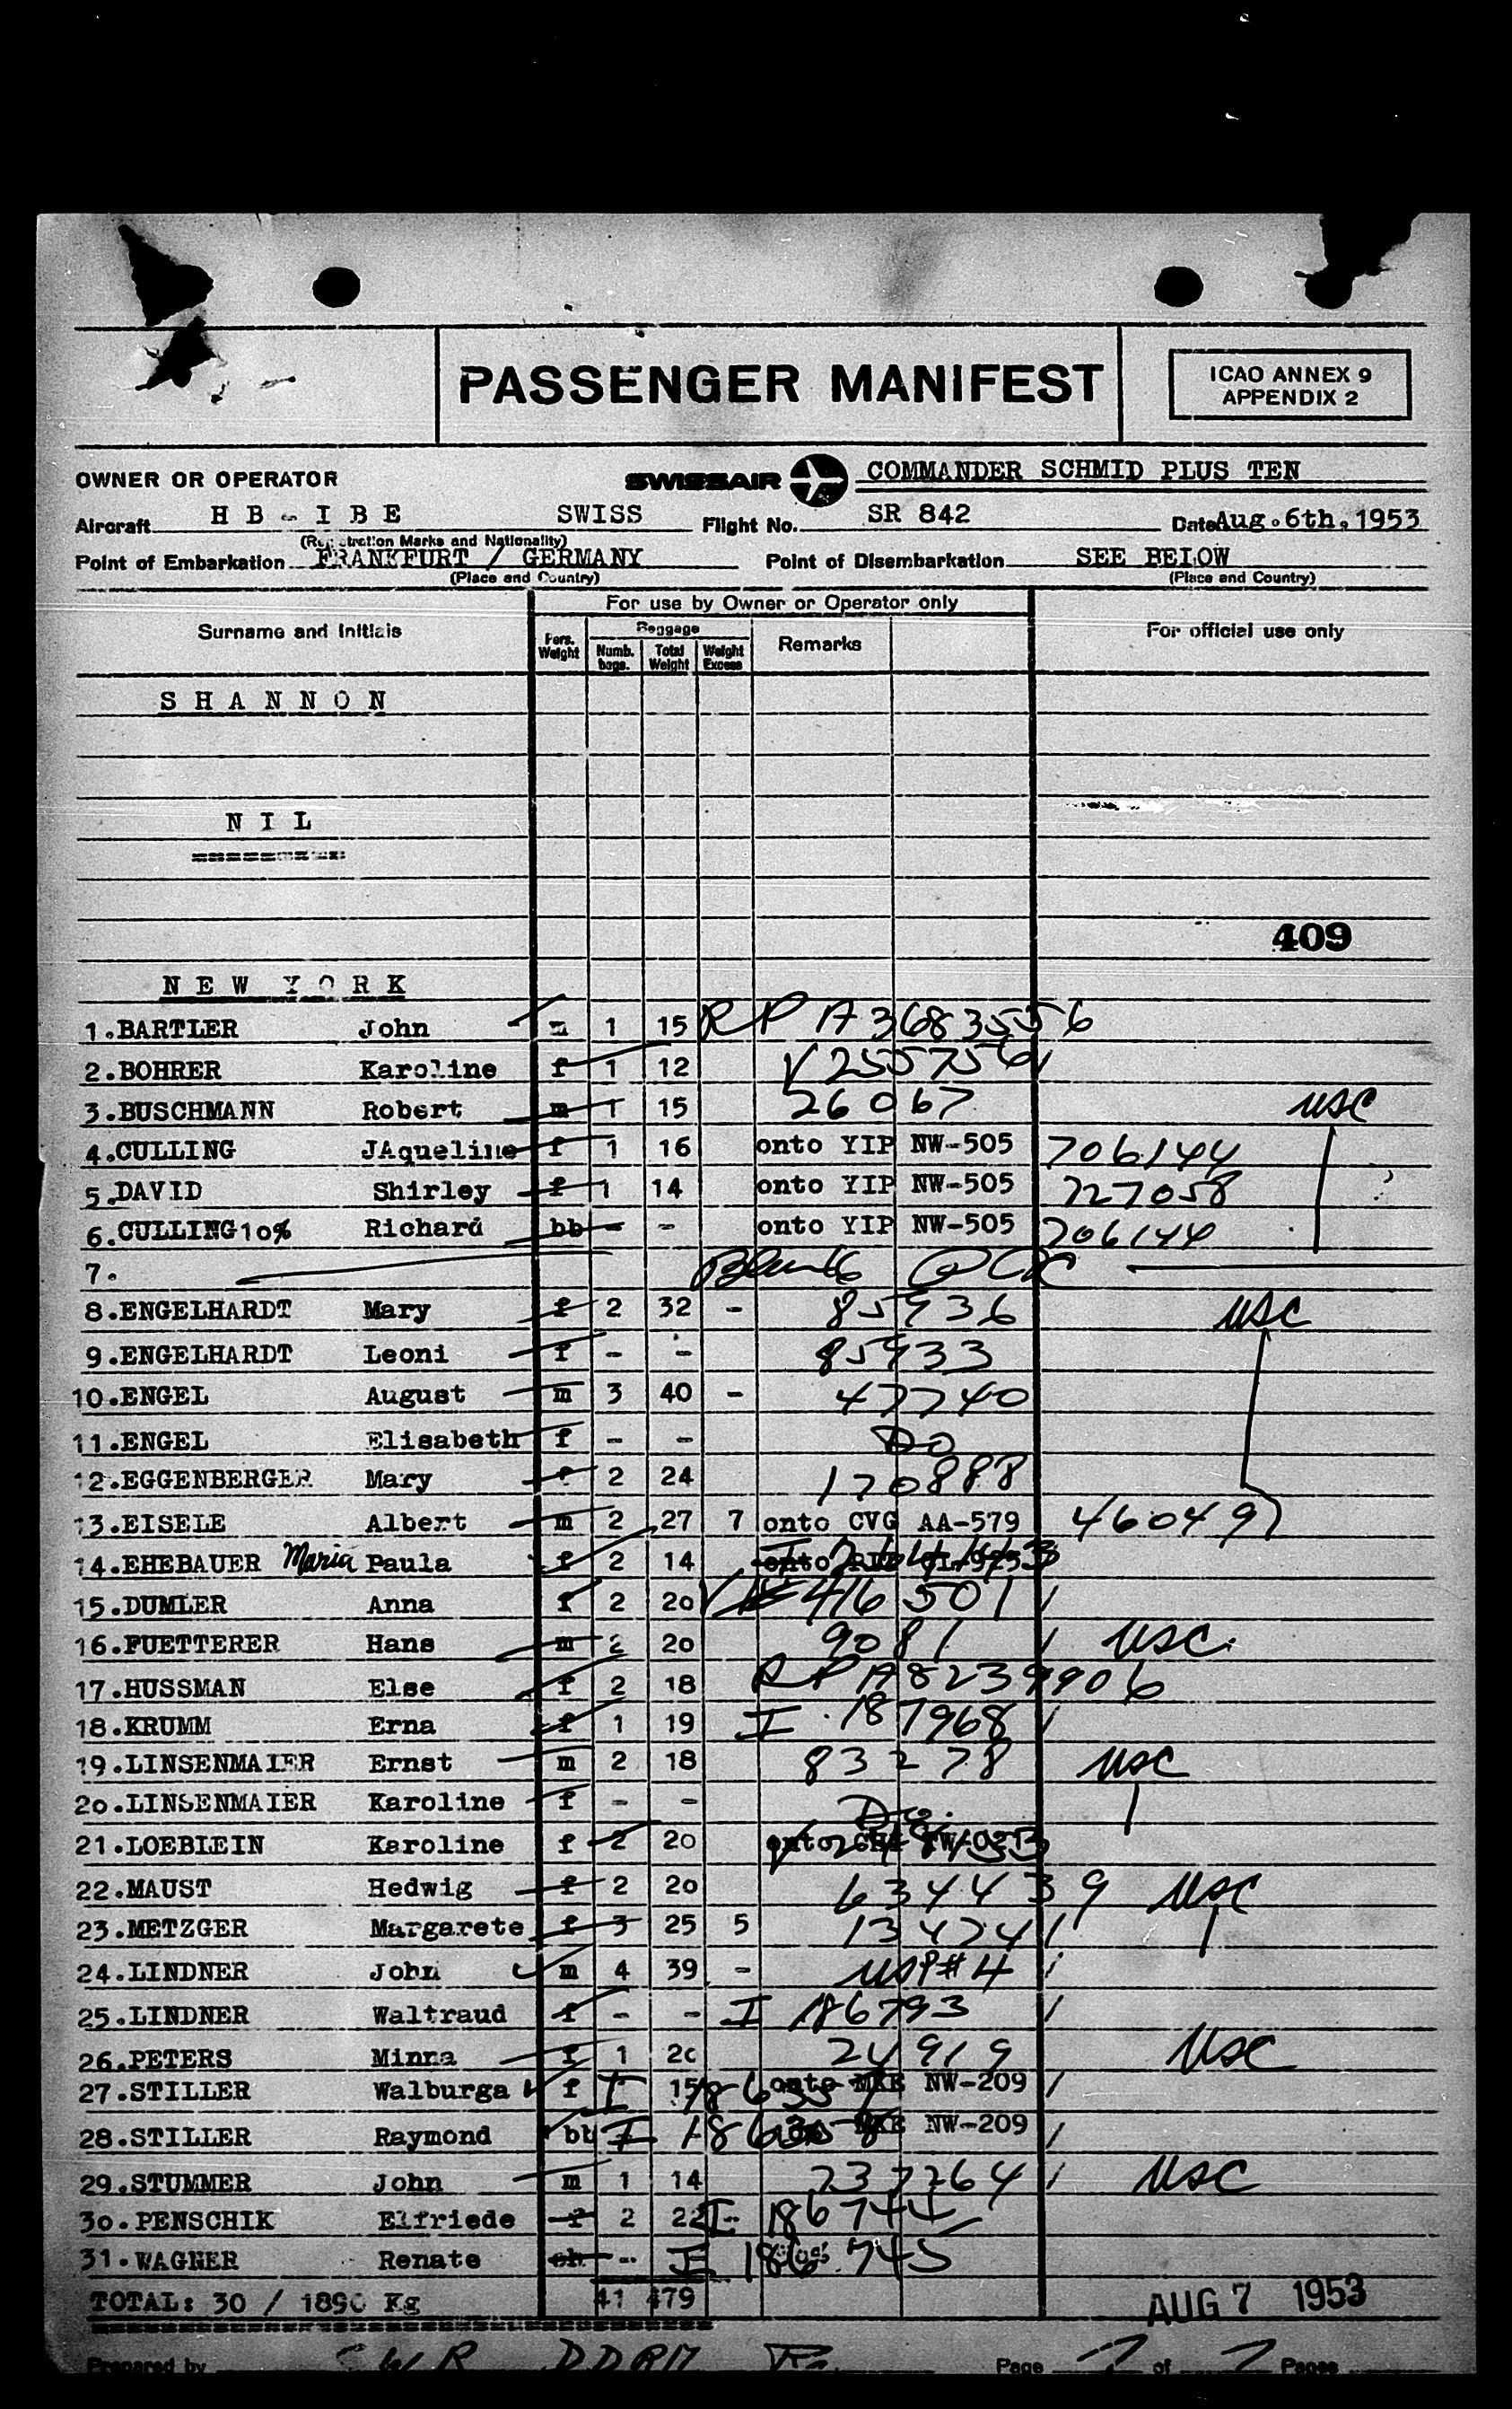 PASSENGER MANIFEST
ICAO ANNEX 9
APPENDIX 2
OWNER OR OPERATOR SWISSAIR COMMANDER SCHMID PLUS TEN
Aircraft HB-IBE SWISS Flight No. SR 842 Date Aug. 6th, 1953
(Registration Marks and Nationality)
Point of Embarkation FRANKFURT / GERMANY Point of Disembarkation SEE BELOW
(Place and Country) (Place and Country)
For use by Owner or Operator only
Surname and Initials Pers. Weight Baggage Numb. bags. Total Weight Weight Excess Remarks For official use only
SHANNON
NIL
==========
409
NEW YORK
1.BARTLER John m 1 15 RP A3683556
2.BOHRER Karoline f 1 12 V255756
3.BUSCHMANN Robert m 1 15 26067 USC
4.CULLING JAqueline f 1 16 onto YIP NW-505 706144
5.DAVID Shirley f 1 14 onto YIP NW-505 727058
6.CULLING10% Richard bb - - onto YIP NW-505 706144
7. Blank
8.ENGELHARDT Mary f 2 32 - 85936 USC
9.ENGELHARDT Leoni f - - 85933
10.ENGEL August m 3 40 - 47740
11.ENGEL Elisabeth f - - Do
12.EGGENBERGER Mary f 2 24 170888
13.EISELE Albert m 2 27 7 onto CVG AA-579 460497
14.EHEBAUER Maria Paula f 2 14 onto
15.DUMLER Anna f 2 20 416501
16.FUETTERER Hans m 2 20 9081 USC.
17.HUSSMAN Else f 2 18 RP A8239906
18.KRUMM Erna f 1 19 I.187968
19.LINSENMAIER Ernst m 2 18 83278 USC
20.LINSENMAIER Karoline f - - Do.
21.LOEBLEIN Karoline f 2 20 onto
22.MAUST Hedwig f 2 20 634439 USC
23.METZGER Margarete f 3 25 5 134741
24.LINDNER John m 4 39 - USP#4
25.LINDNER Waltraud f - - I 186793
26.PETERS Minna f 1 20 24919 USC
27.STILLER Walburga f I 15 onto MKE NW-209
28.STILLER Raymond bb I MKE NW-209
29.STUMMER John m 1 14 237264 USC
30.PENSCHIK Elfriede f 2 22 I- 186744
31.WAGNER Renate ch - I 186745
TOTAL: 30 / 1890 Kg 41 479
AUG 7 1953
Prepared by Page of Pages